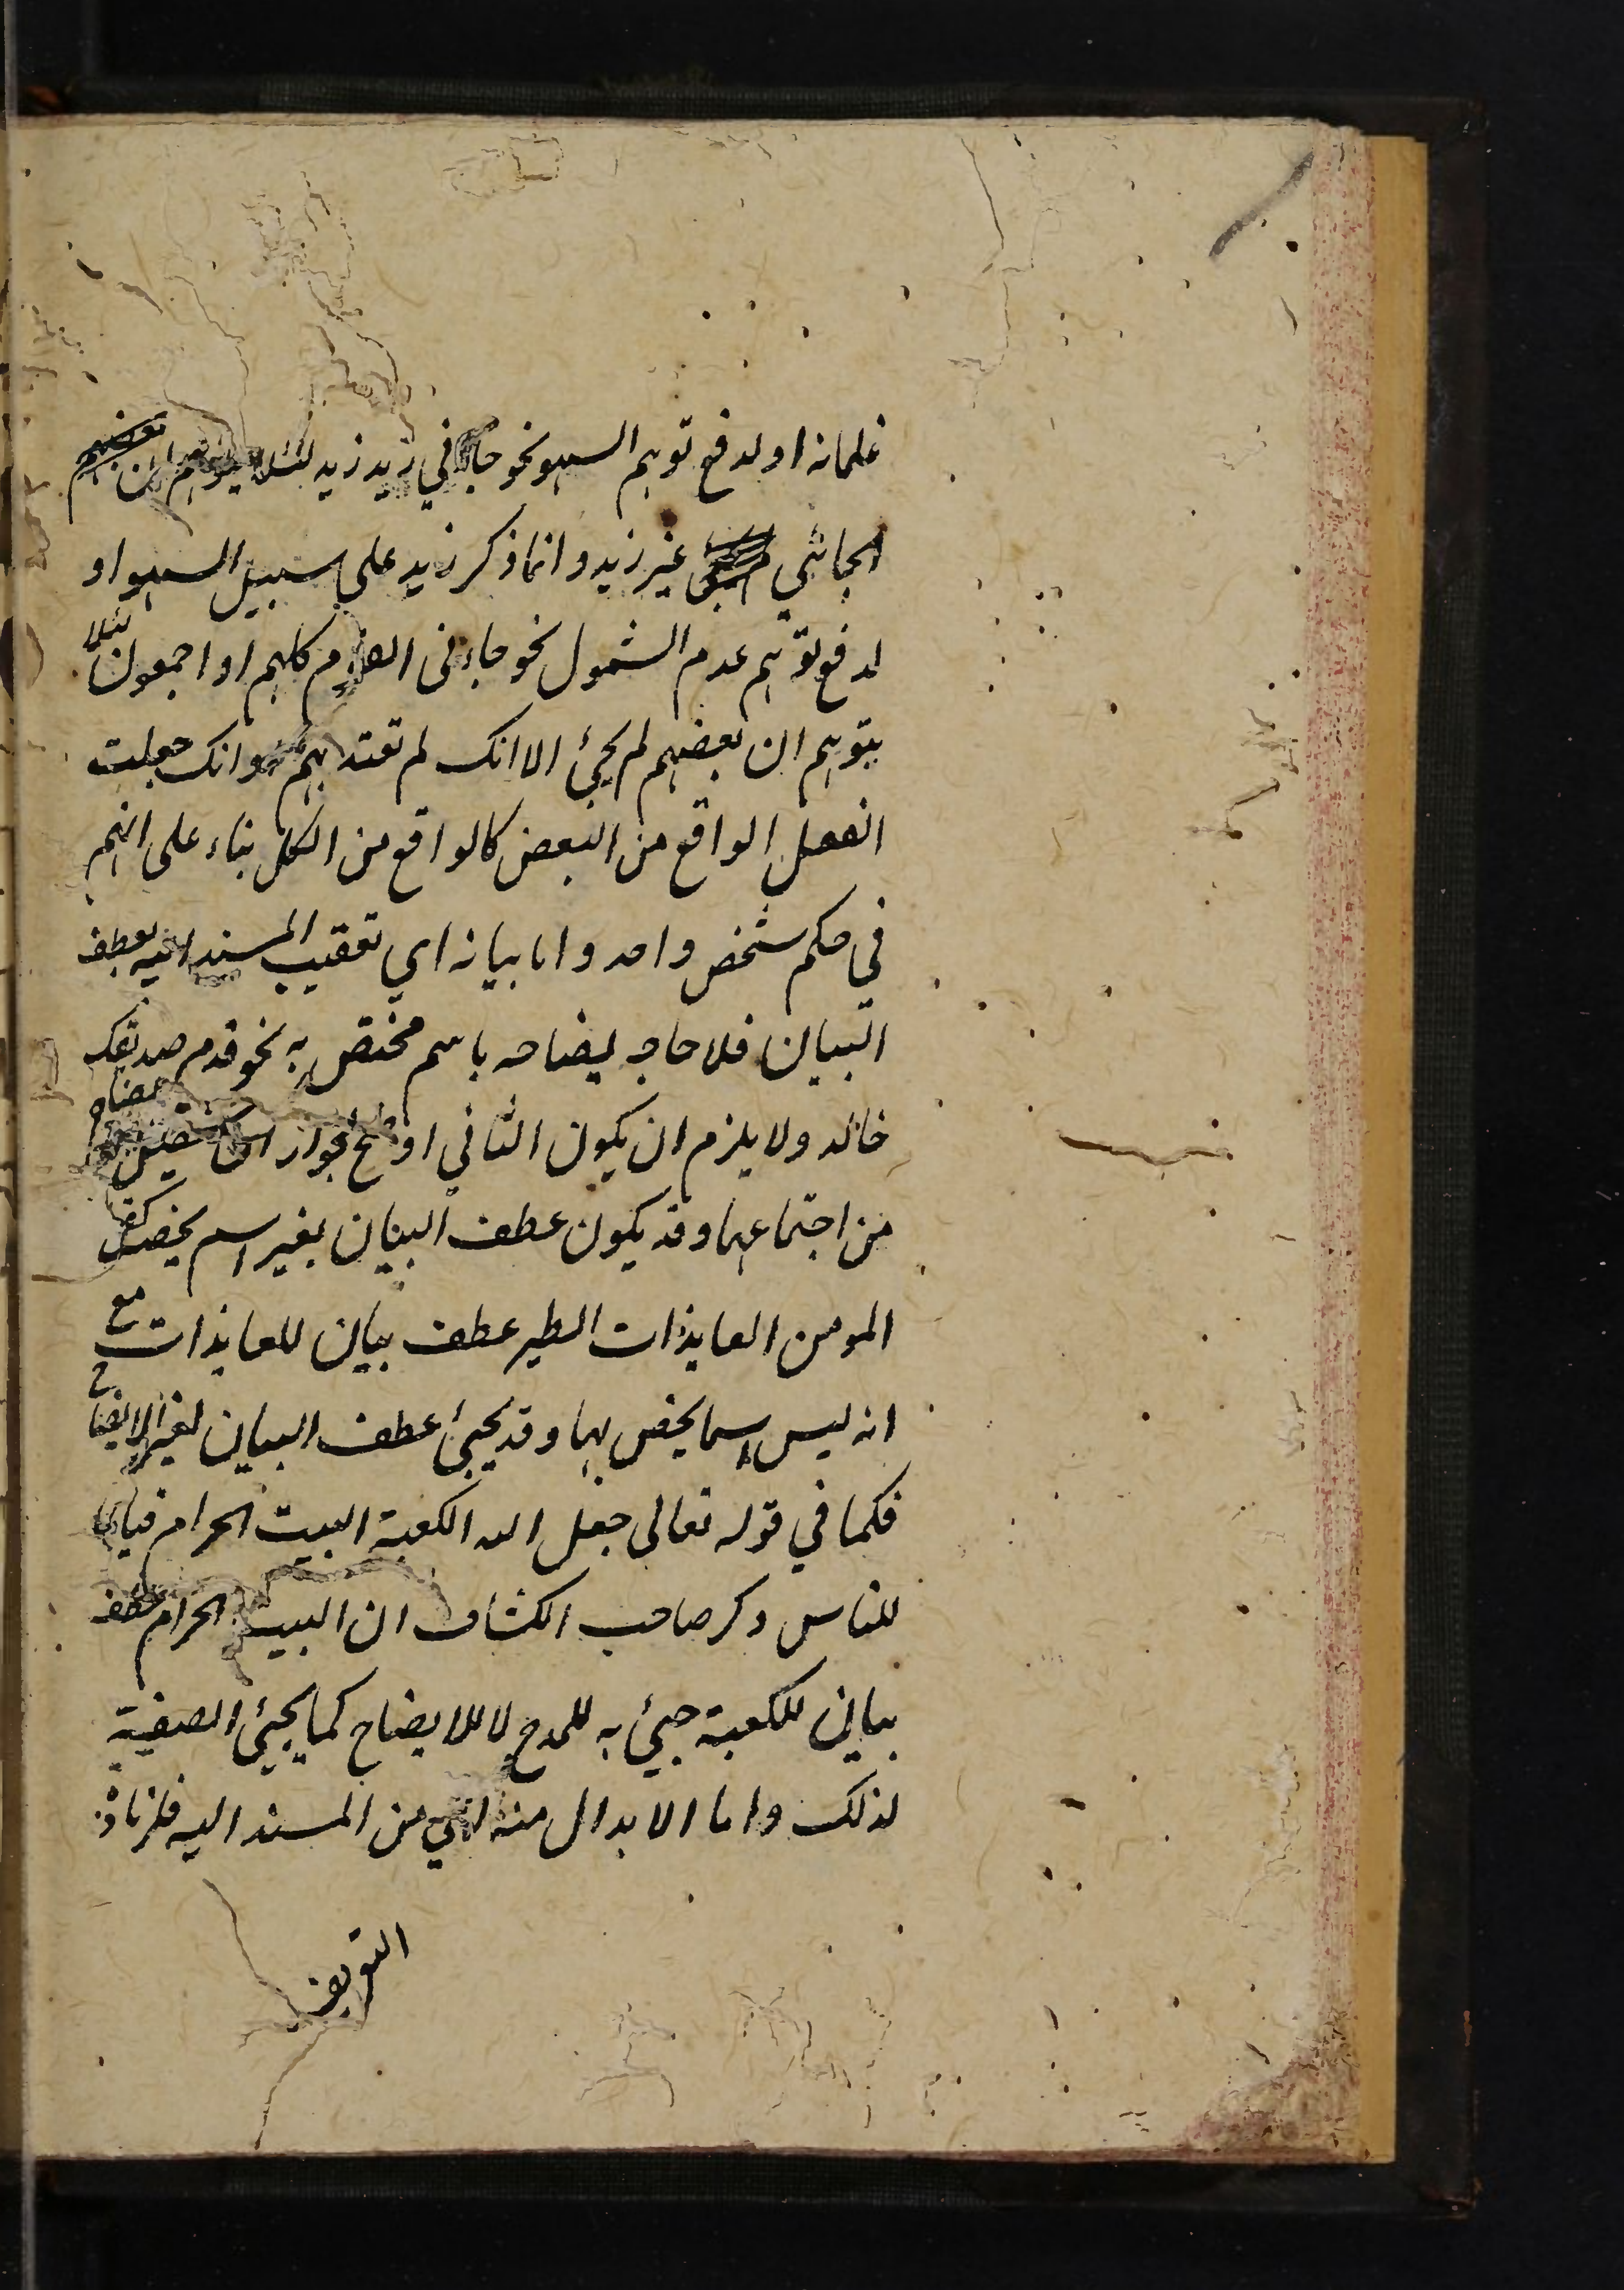 غلمانه او لدفع توهم السهو نحو جاءني زيد زيد لئلا يتوهم ان
الجائي غير زيد وانما ذكر زيد على سبيل السهو او
لدفع توهم عدم الشمول نحو جاءني القوم كلهم او اجمعون لئلا
يتوهم ان بعضهم لم يجئ الا انك لم تعتد بهم وانك جعلت
الفعل الواقع من البعض كالواقع من الكل بناء على انهم
في حكم شخص واحد واما بيانه اي تعقيب المسند اليه بعطف
البيان فلا حاجه ليضاحه باسم مختص به نحو قدم صديقك
خالد ولا يلزم ان يكون الثاني اوضح لجواز ان
من اجتماعهما وقد يكون عطف البيان بغير اسم يختص كقو
المومن العايذات الطير عطف بيان للعايذات مع
انه ليس اسما يختص بها وقد يجئ عطف البيان لغير الايضاح
فكما في قوله تعالى جعل الله الكعبة البيت الحرام قياما
للناس ذكر صاحب الكشاف ان البيت الحرام عطف
بيان للكعبة جيئ به للمدح لا للايضاح كما يجيئ الصفية
لذلك واما الابدال منه اي من المسند اليه فلزيادة
التقرير